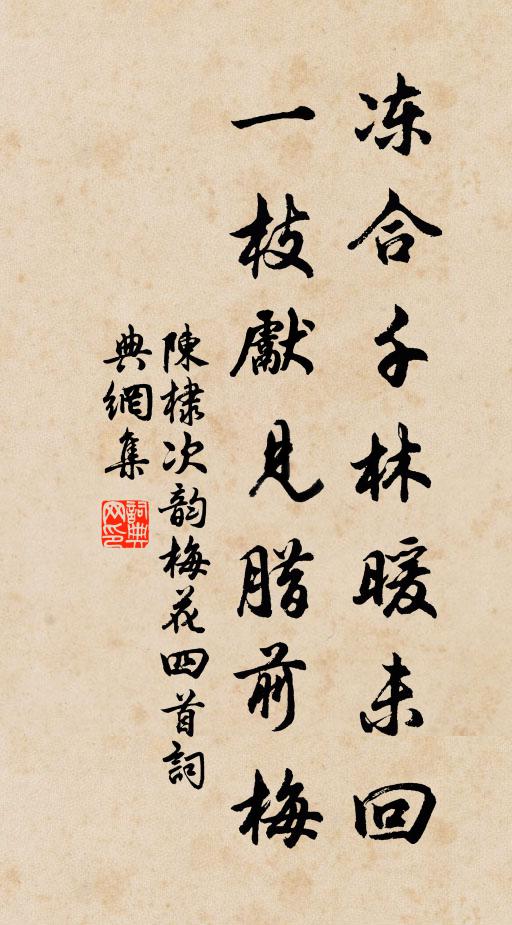 冻合千林暖未回
一枝獻見腊前梅
陳棣次韵梅花四首詞
典網集
詞典网印